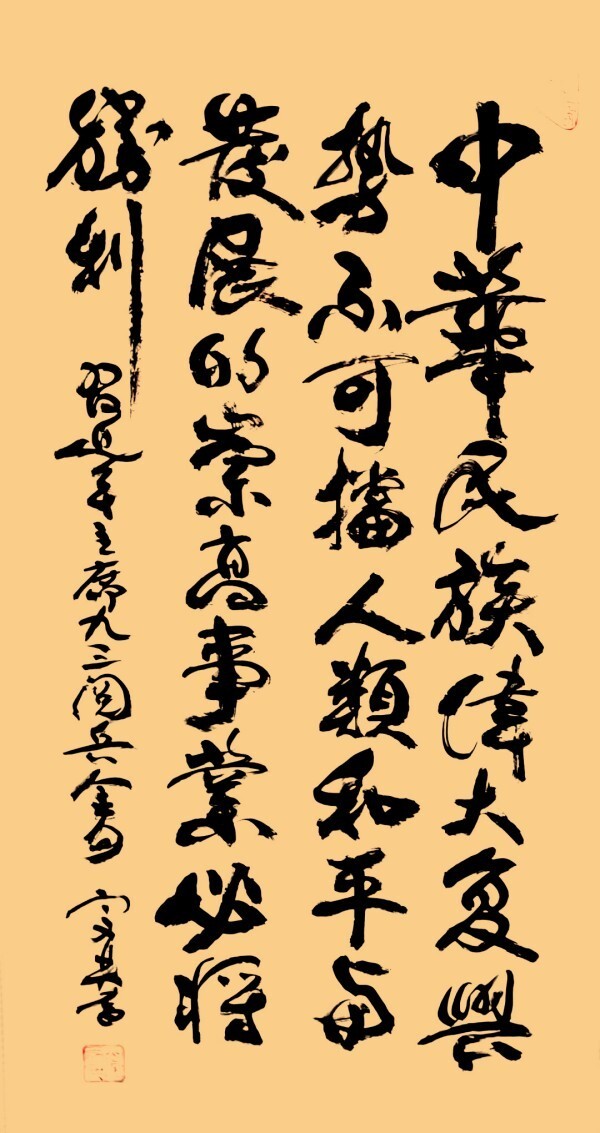 中華民族偉大复興
勢不可擋人類和平与
發展的崇高事業必將
勝利
習近平主席九三閲兵金句